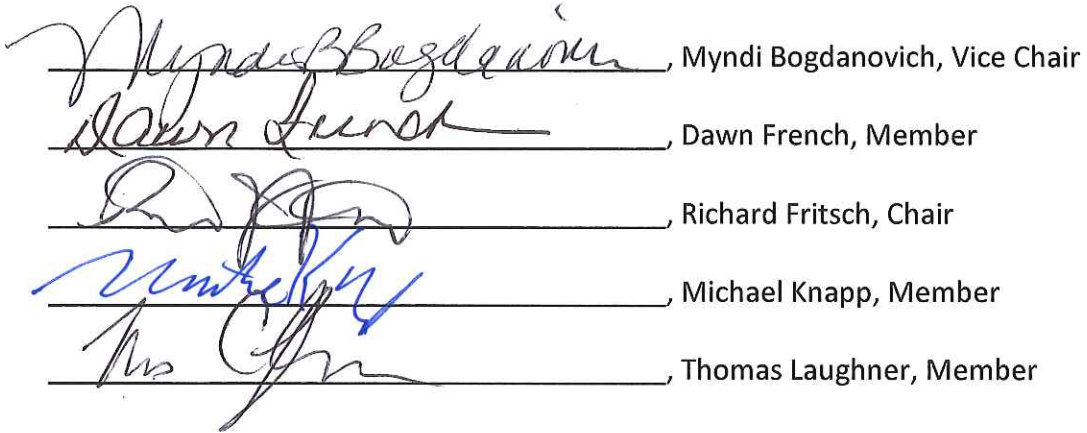 Myndi B Bogdanovich, Myndi Bogdanovich, Vice Chair
Dawn French, Dawn French, Member
, Richard Fritsch, Chair
, Michael Knapp, Member
, Thomas Laughner, Member